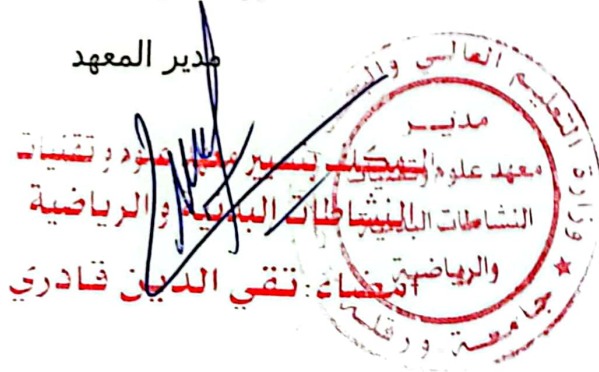 مدير المعهد
المكلف بتسيير معهد علوم وتقنيات
النشاطات البدنية والرياضية
امضاء: تقي الدين قادري
وزارة التعليم العالي
مديـر
معهد علوم وتقنيات
النشاطات البدنية
والرياضية
جامعة ورقلة